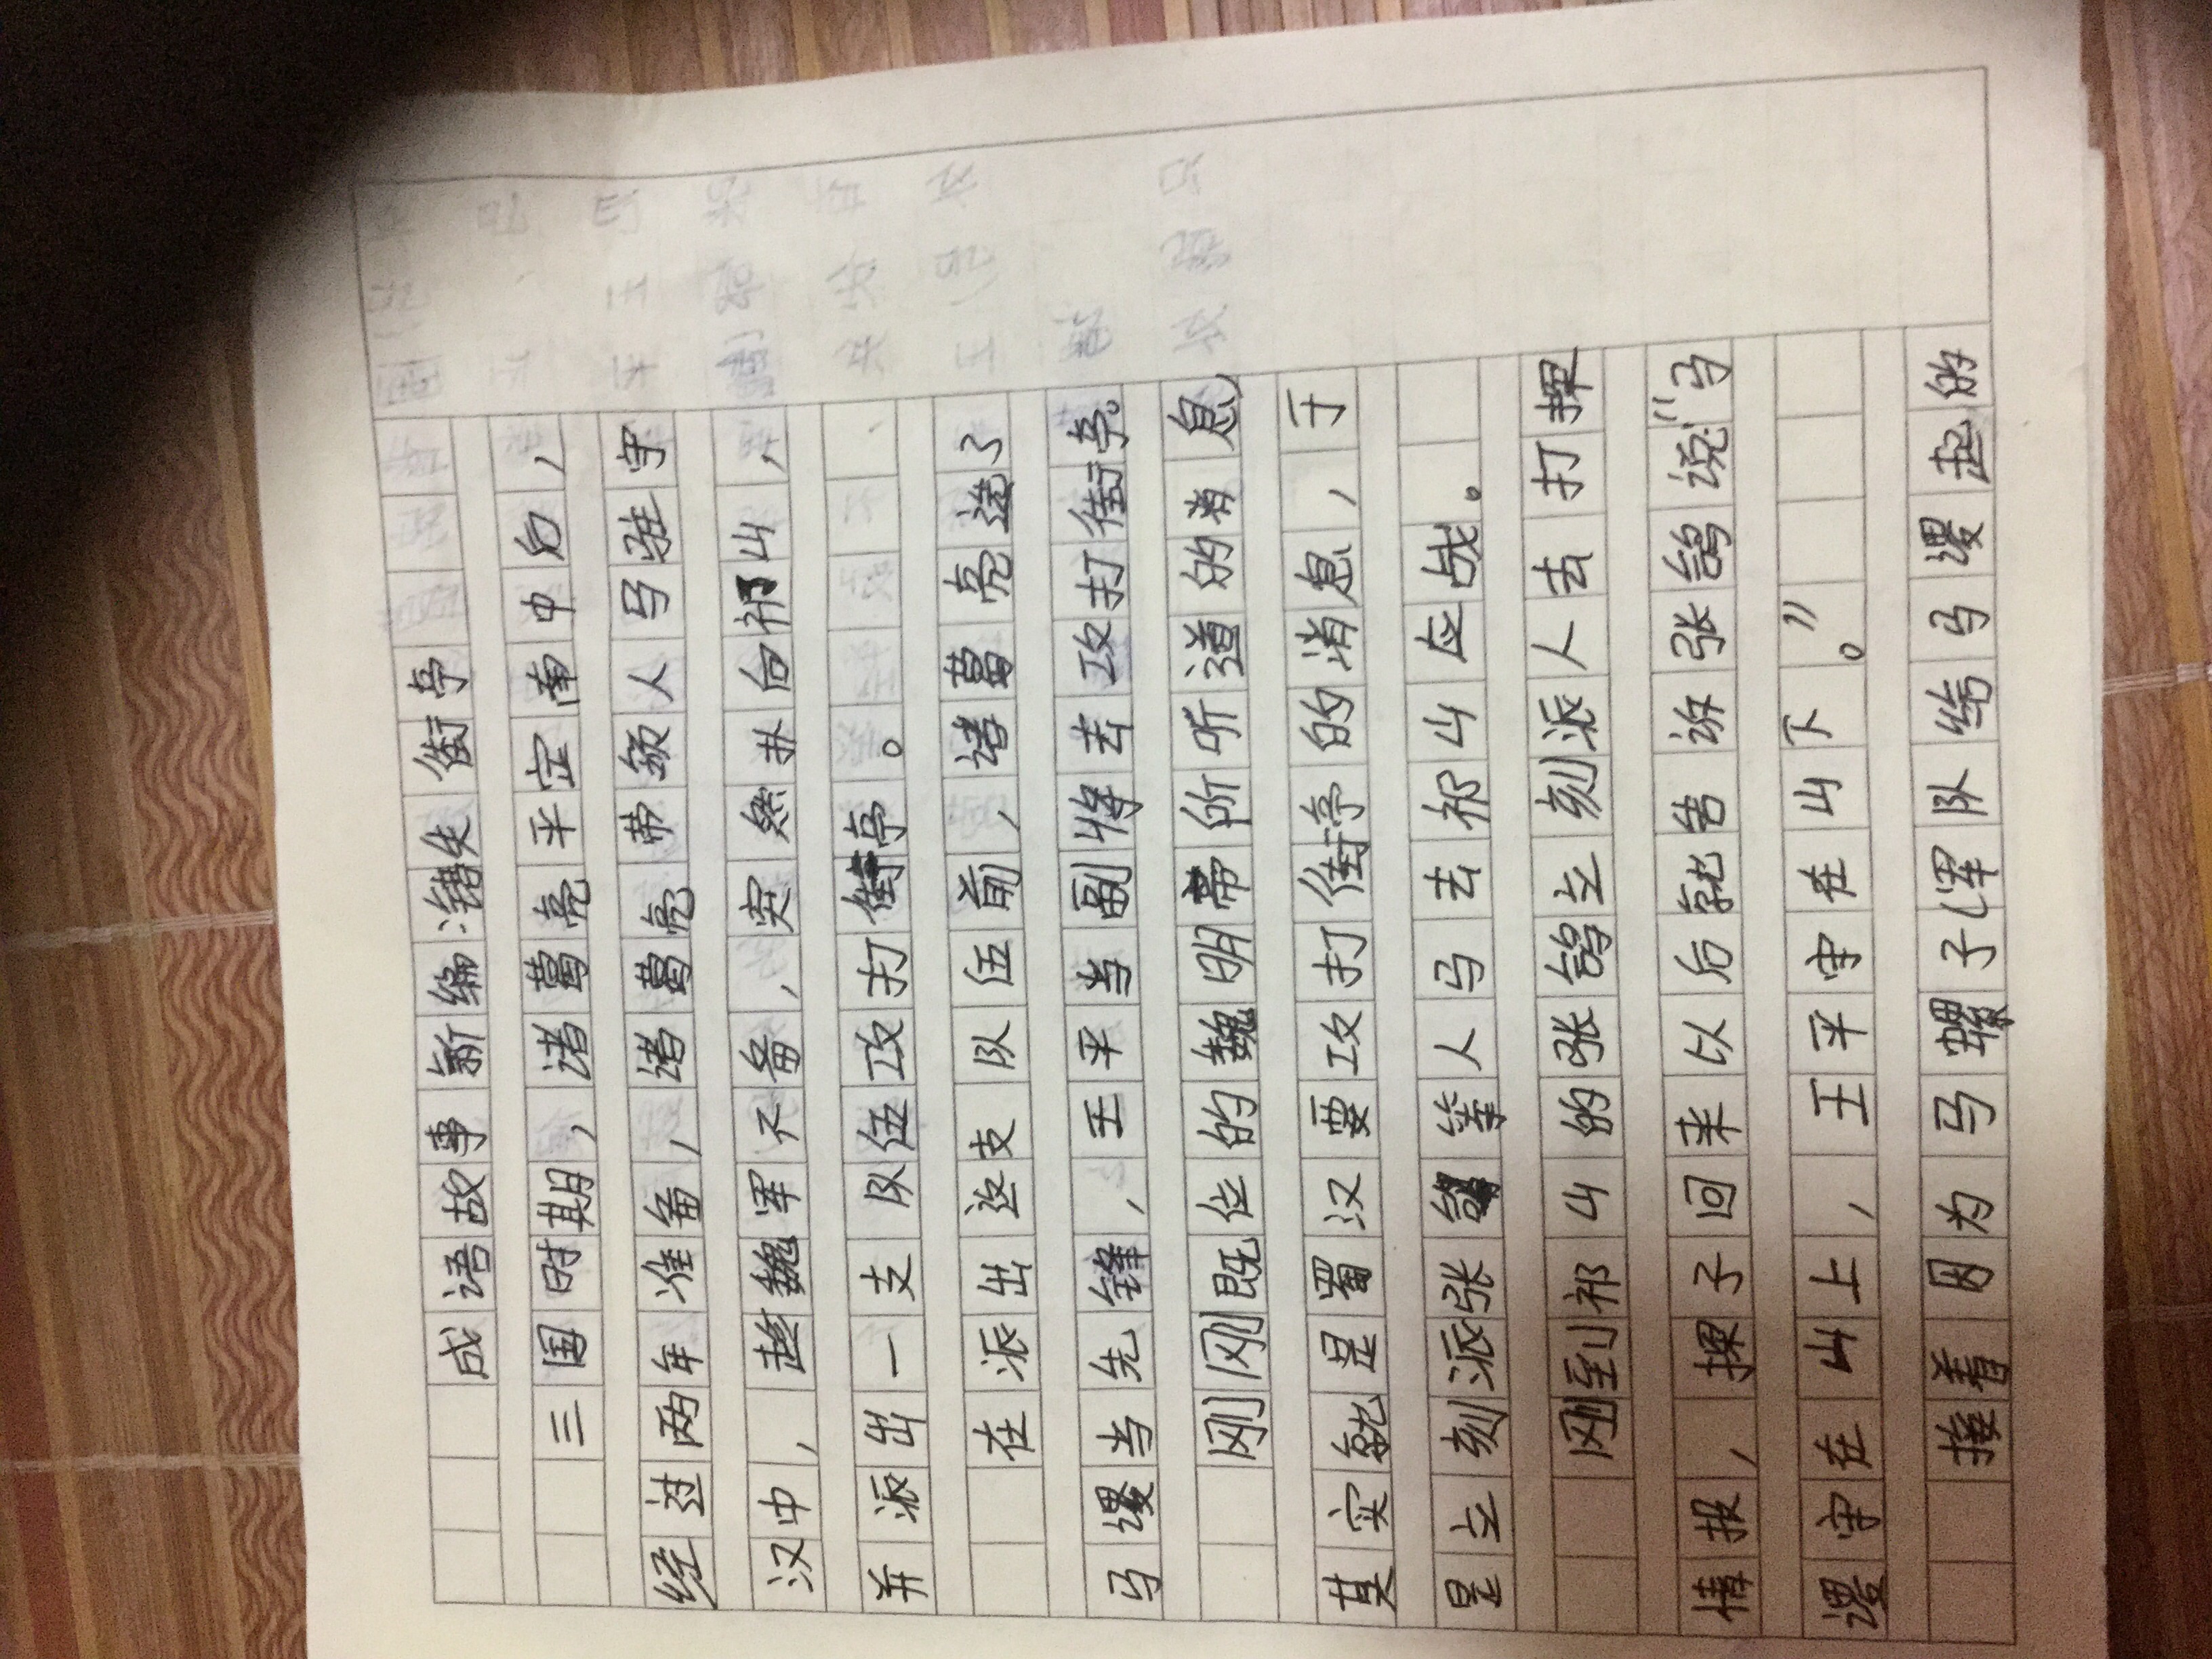 成语故事新编:错失街亭
三国时期,诸葛亮平定南中后,
经过两年准备,诸葛亮带领人马驻守
汉中,趁魏军不备,突然扑向祁山,
并派出一支队伍攻打街亭。
在派出这支队伍前,诸葛亮选了
马谡当先锋,王平当副将去攻打街亭。
刚刚既位的魏明帝所听道的消息,
其实就是蜀汉要攻打街亭的消息,于
是立刻派张郃等人马去祁山应战。
刚到祁山的张郃立刻派人去打探
情报,探子回来以后就告诉张郃说:"马
谡守在山上,王平守在山下。"
接着因为马骡子(军队给马谡起的